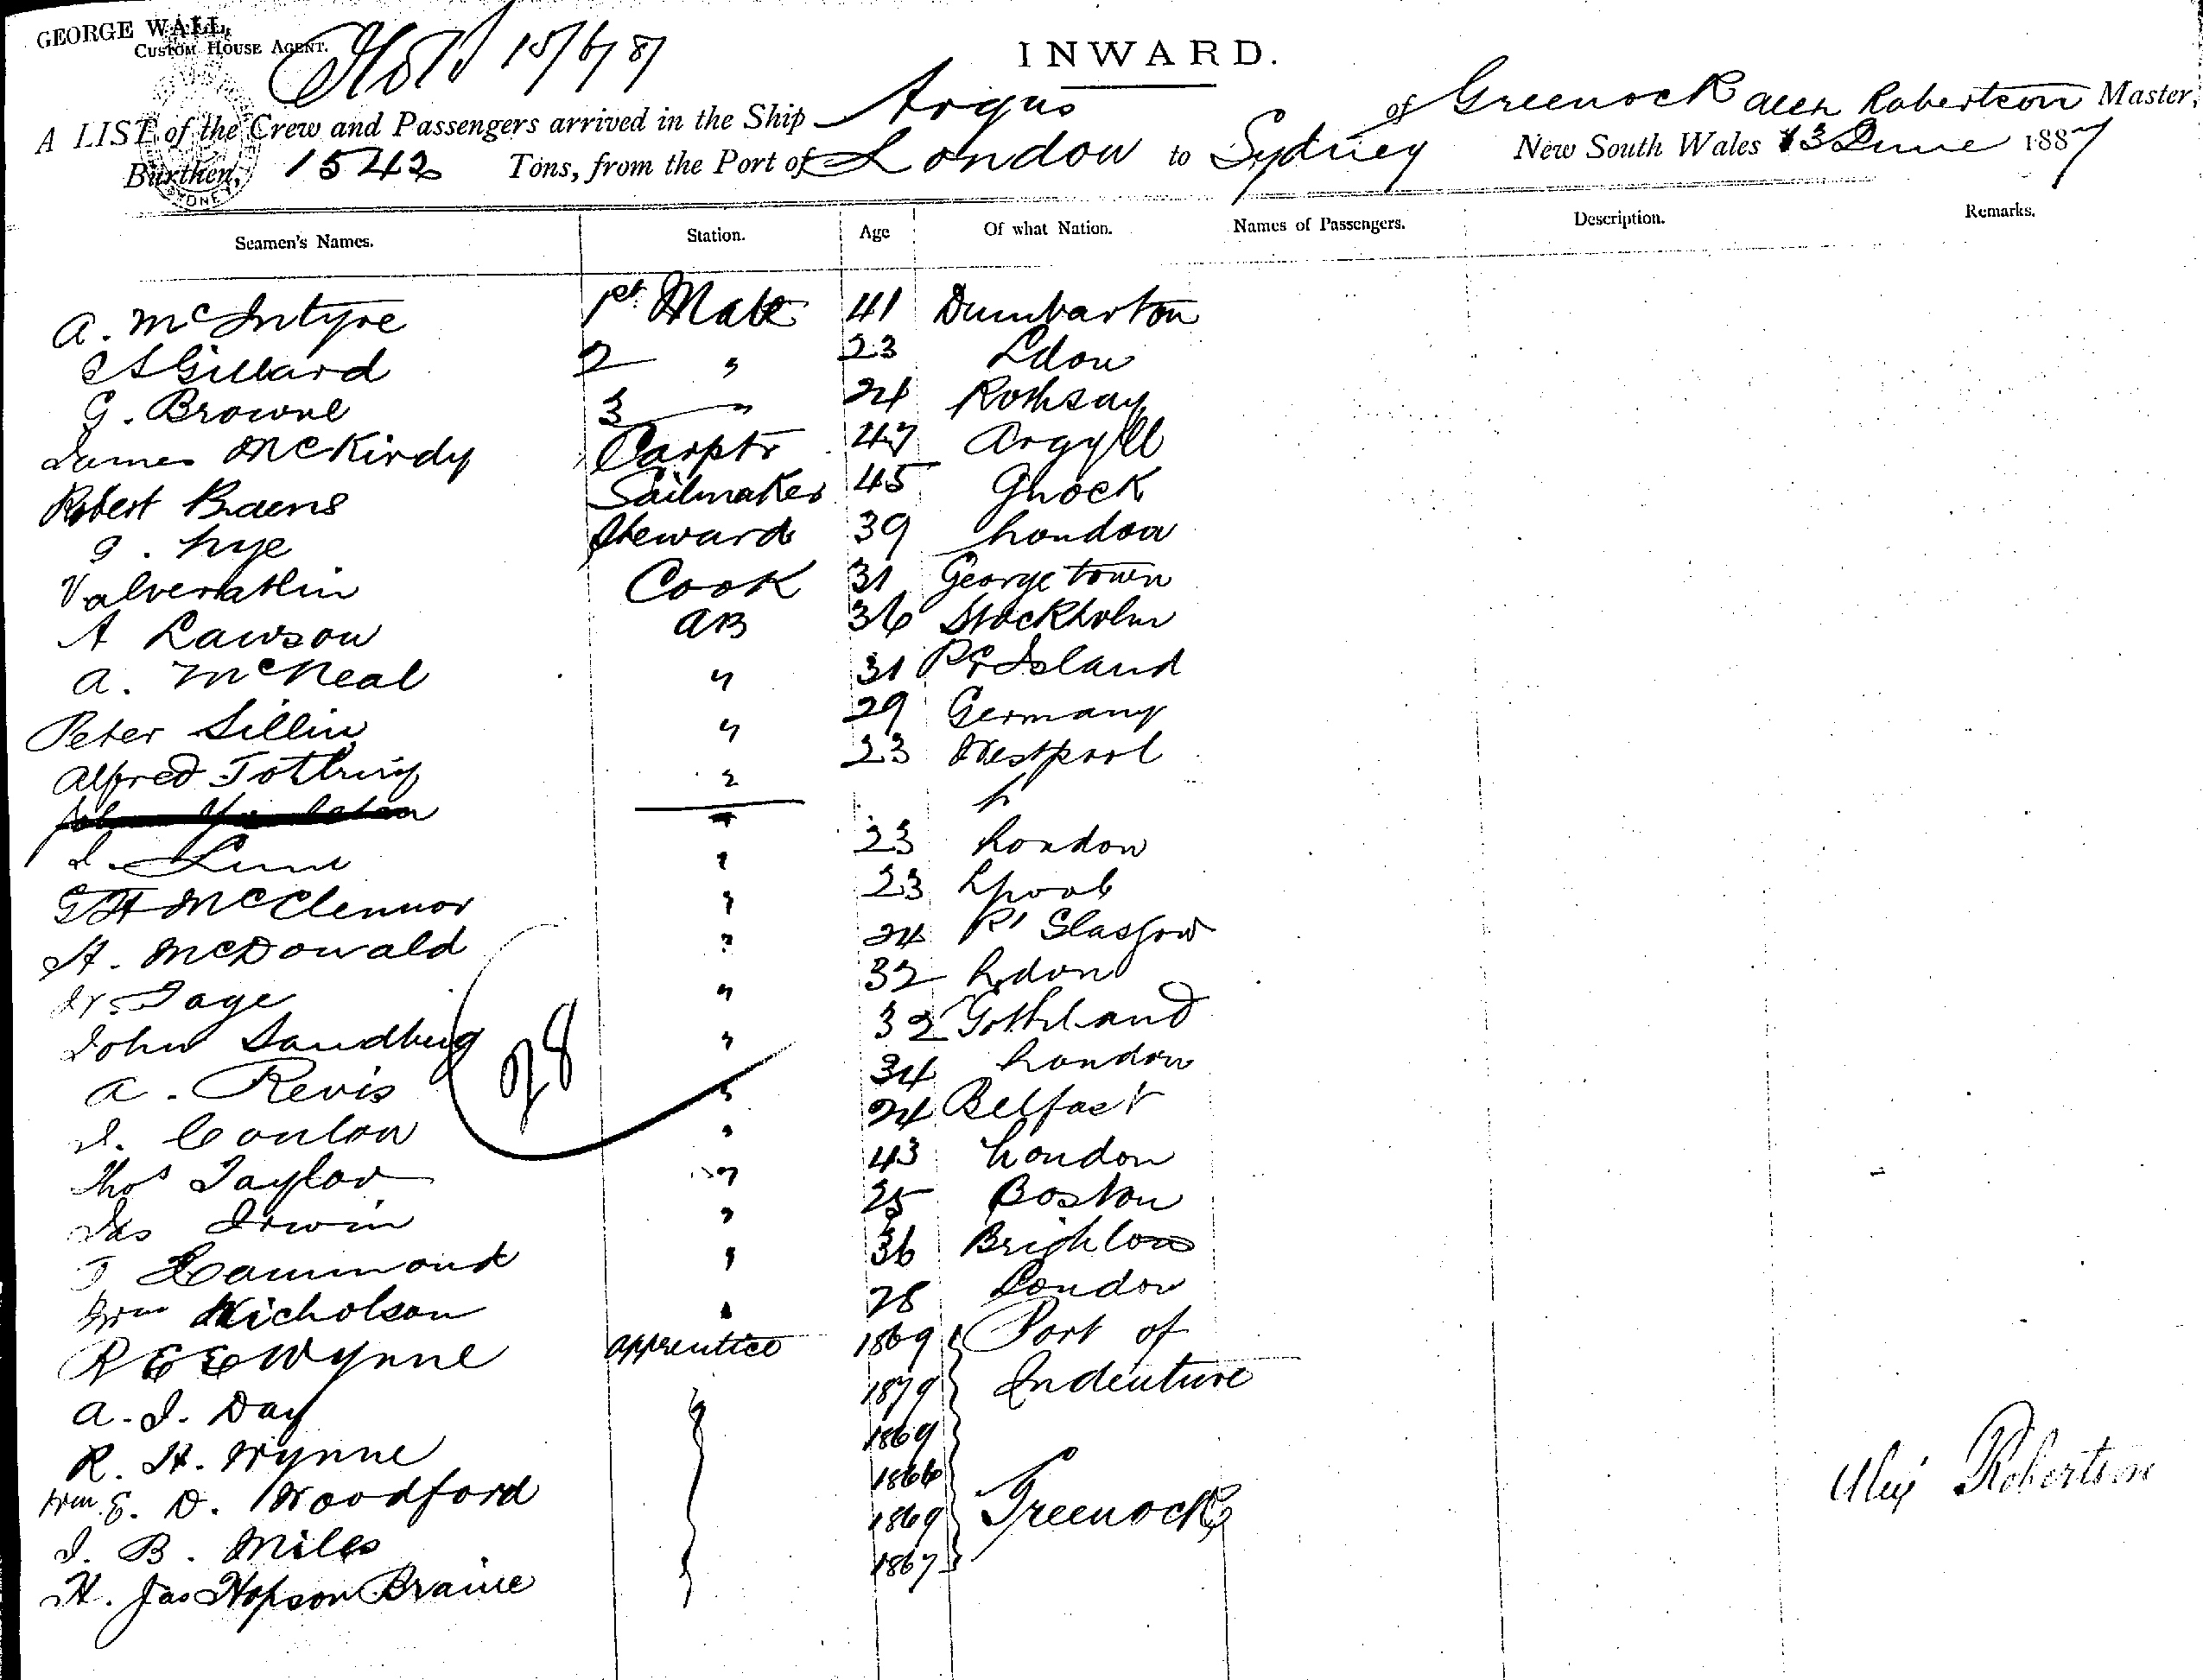 GEORGE WALL,
CUSTOM HOUSE AGENT.
15/6/87
INWARD.
A LIST of the Crew and Passengers arrived in the Ship Argus of Greenock Alex Robertson Master,
Burthen, 1542 Tons, from the Port of London to Sydney New South Wales 13 June 1887
Seamen's Names. Station. Age Of what Nation. Names of Passengers. Description. Remarks.
A. McIntyre 1st Mate 41 Dumbarton
Gillard 2 " 23 Ldon
G. Browne 3 " 24 Rothsay
James McKirdy Carptr 47 Argyll
Robert Sailmaker 45 Gnock
Nye Steward 39 London
Cook 31 Georgetown
A Lawson AB 36 Stockholm
A. McNeal " 31 Island
Peter Sillin " 29 Germany
Alfred " 23
" "
" 23 London
McClennor " 23 Lpool
A. McDonald " 24 Pt Glasgow
" 32 Ldon
John " 32 Gothland
A. Revis " 34 London
Conlon " 24 Belfast
Thos Taylor " 43 London
Jas Irwin " 25 Boston
Hammond " 36 Brighton
Wm Nicholson " 28 London
28
R E E Wynne apprentice 1869 Port of
A. J. Day " 1879 Indenture
R. H. Wynne 1869
Wm E. D. Woodford 1866
J. B. Miles 1869 Greenock
H. Jas Hopson Braine 1867
Alex Robertson